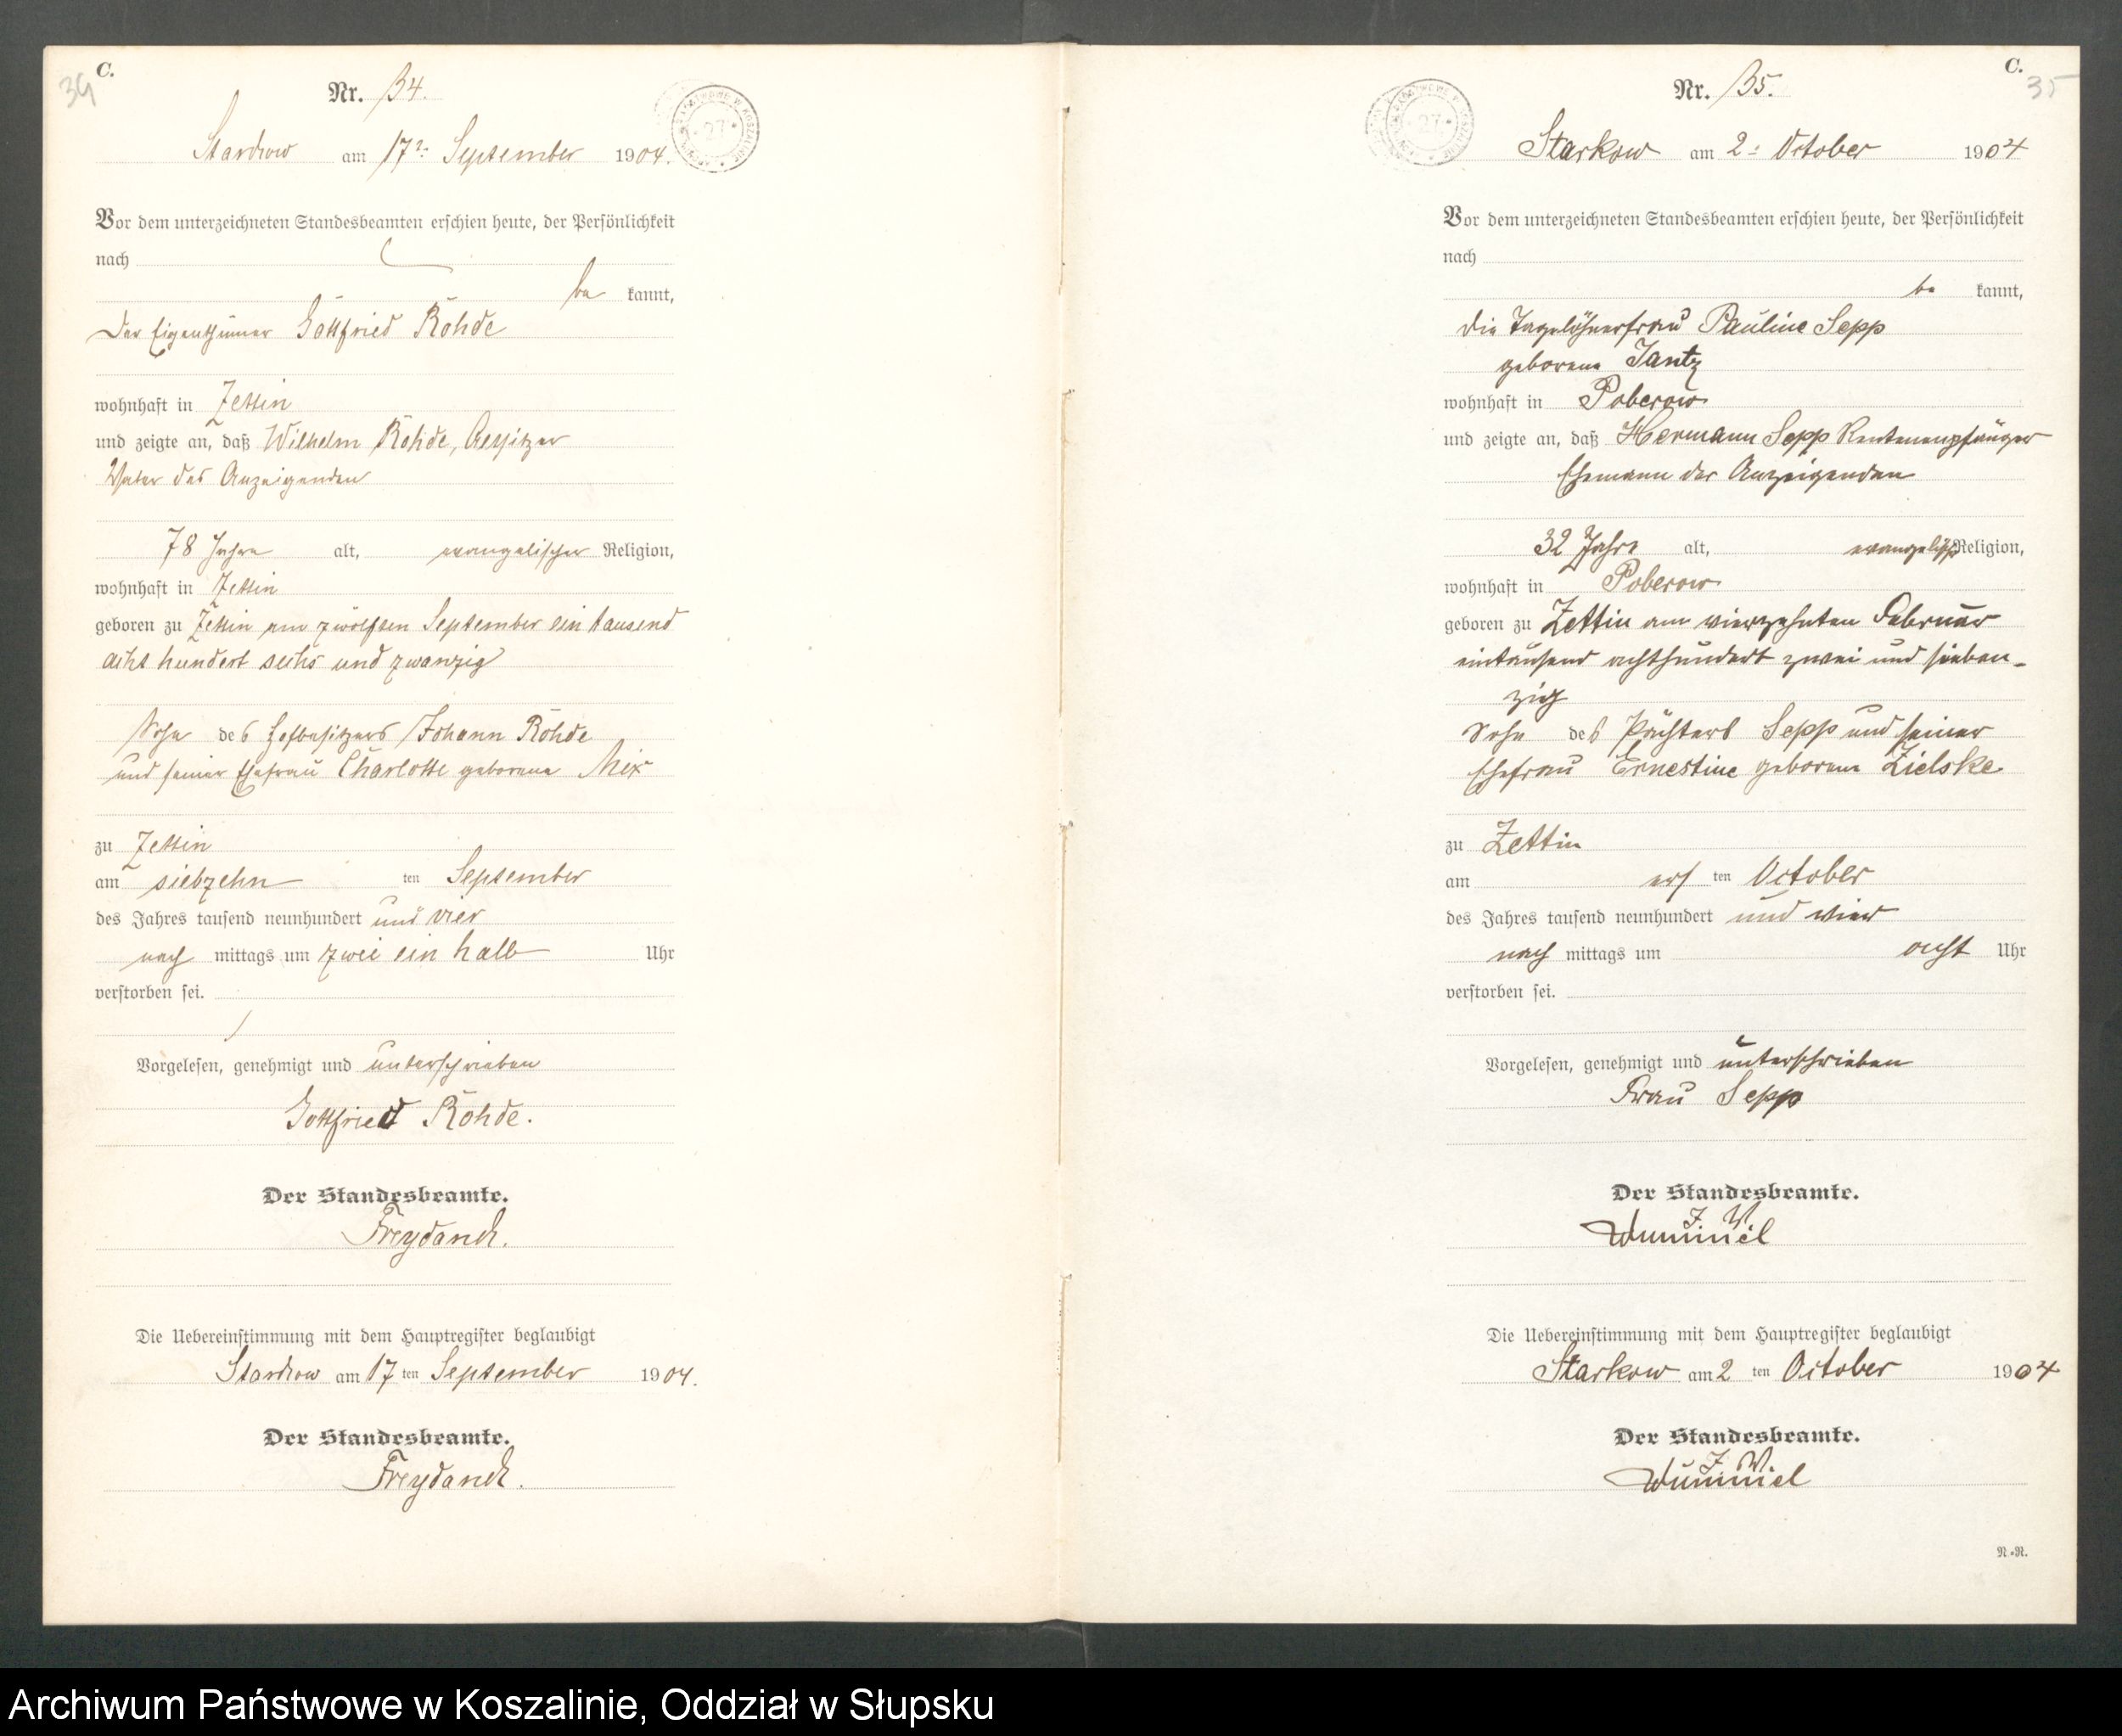 C.
34
Nr. 34.
Starkow am 17t September 1904.
Vor dem unterzeichneten Standesbeamten erschien heute, der Persönlichkeit
nach
be kannt,
der Eigenthümer Gottfried Rohde
wohnhaft in Zettin
und zeigte an, daß Wilhelm Rohde,
Vater des Anzeigenden
78 Jahre alt, evangelischer Religion,
wohnhaft in Zettin
geboren zu Zettin am zwölften September ein tausend
acht hundert sechs und zwanzig
Sohn des Hofbesitzers Johann Rohde
und seiner Ehefrau Charlotte geborene Mix
zu Zettin
am siebzehn ten September
des Jahres tausend neunhundert und vier
nach mittags um zwei ein halb Uhr
verstorben sei.
Vorgelesen, genehmigt und unterschrieben
Gottfried Rohde.
Der Standesbeamte.
Freydanck.
Die Uebereinstimmung mit dem Hauptregister beglaubigt
Starkow am 17 ten September 1904.
Der Standesbeamte.
Freydanck.
C.
35
Nr. 35.
27
Starkow am 2t October 1904
Vor dem unterzeichneten Standesbeamten erschien heute, der Persönlichkeit
nach
be kannt,
die Tagelöhnerfrau Pauline Sepp
geborene Jantz
wohnhaft in Poberow
und zeigte an, daß Hermann Sepp Rentenempfänger
Ehemann der Anzeigenden
32 Jahre alt, evangelisch Religion,
wohnhaft in Poberow
geboren zu Zettin am vierzehnten Februar
eintausend achthundert zwei und sieben-
zig
Sohn des Pächters Sepp und seiner
Ehefrau Ernestine geborene Zielske
zu Zettin
am ers ten October
des Jahres tausend neunhundert und vier
nach mittags um acht Uhr
verstorben sei.
Vorgelesen, genehmigt und unterschrieben
Frau Sepp
Der Standesbeamte.
J. W.
Die Uebereinstimmung mit dem Hauptregister beglaubigt
Starkow am 2 ten October 1904
Der Standesbeamte.
J. W.
N.=N.
Archiwum Państwowe w Koszalinie, Oddział w Słupsku